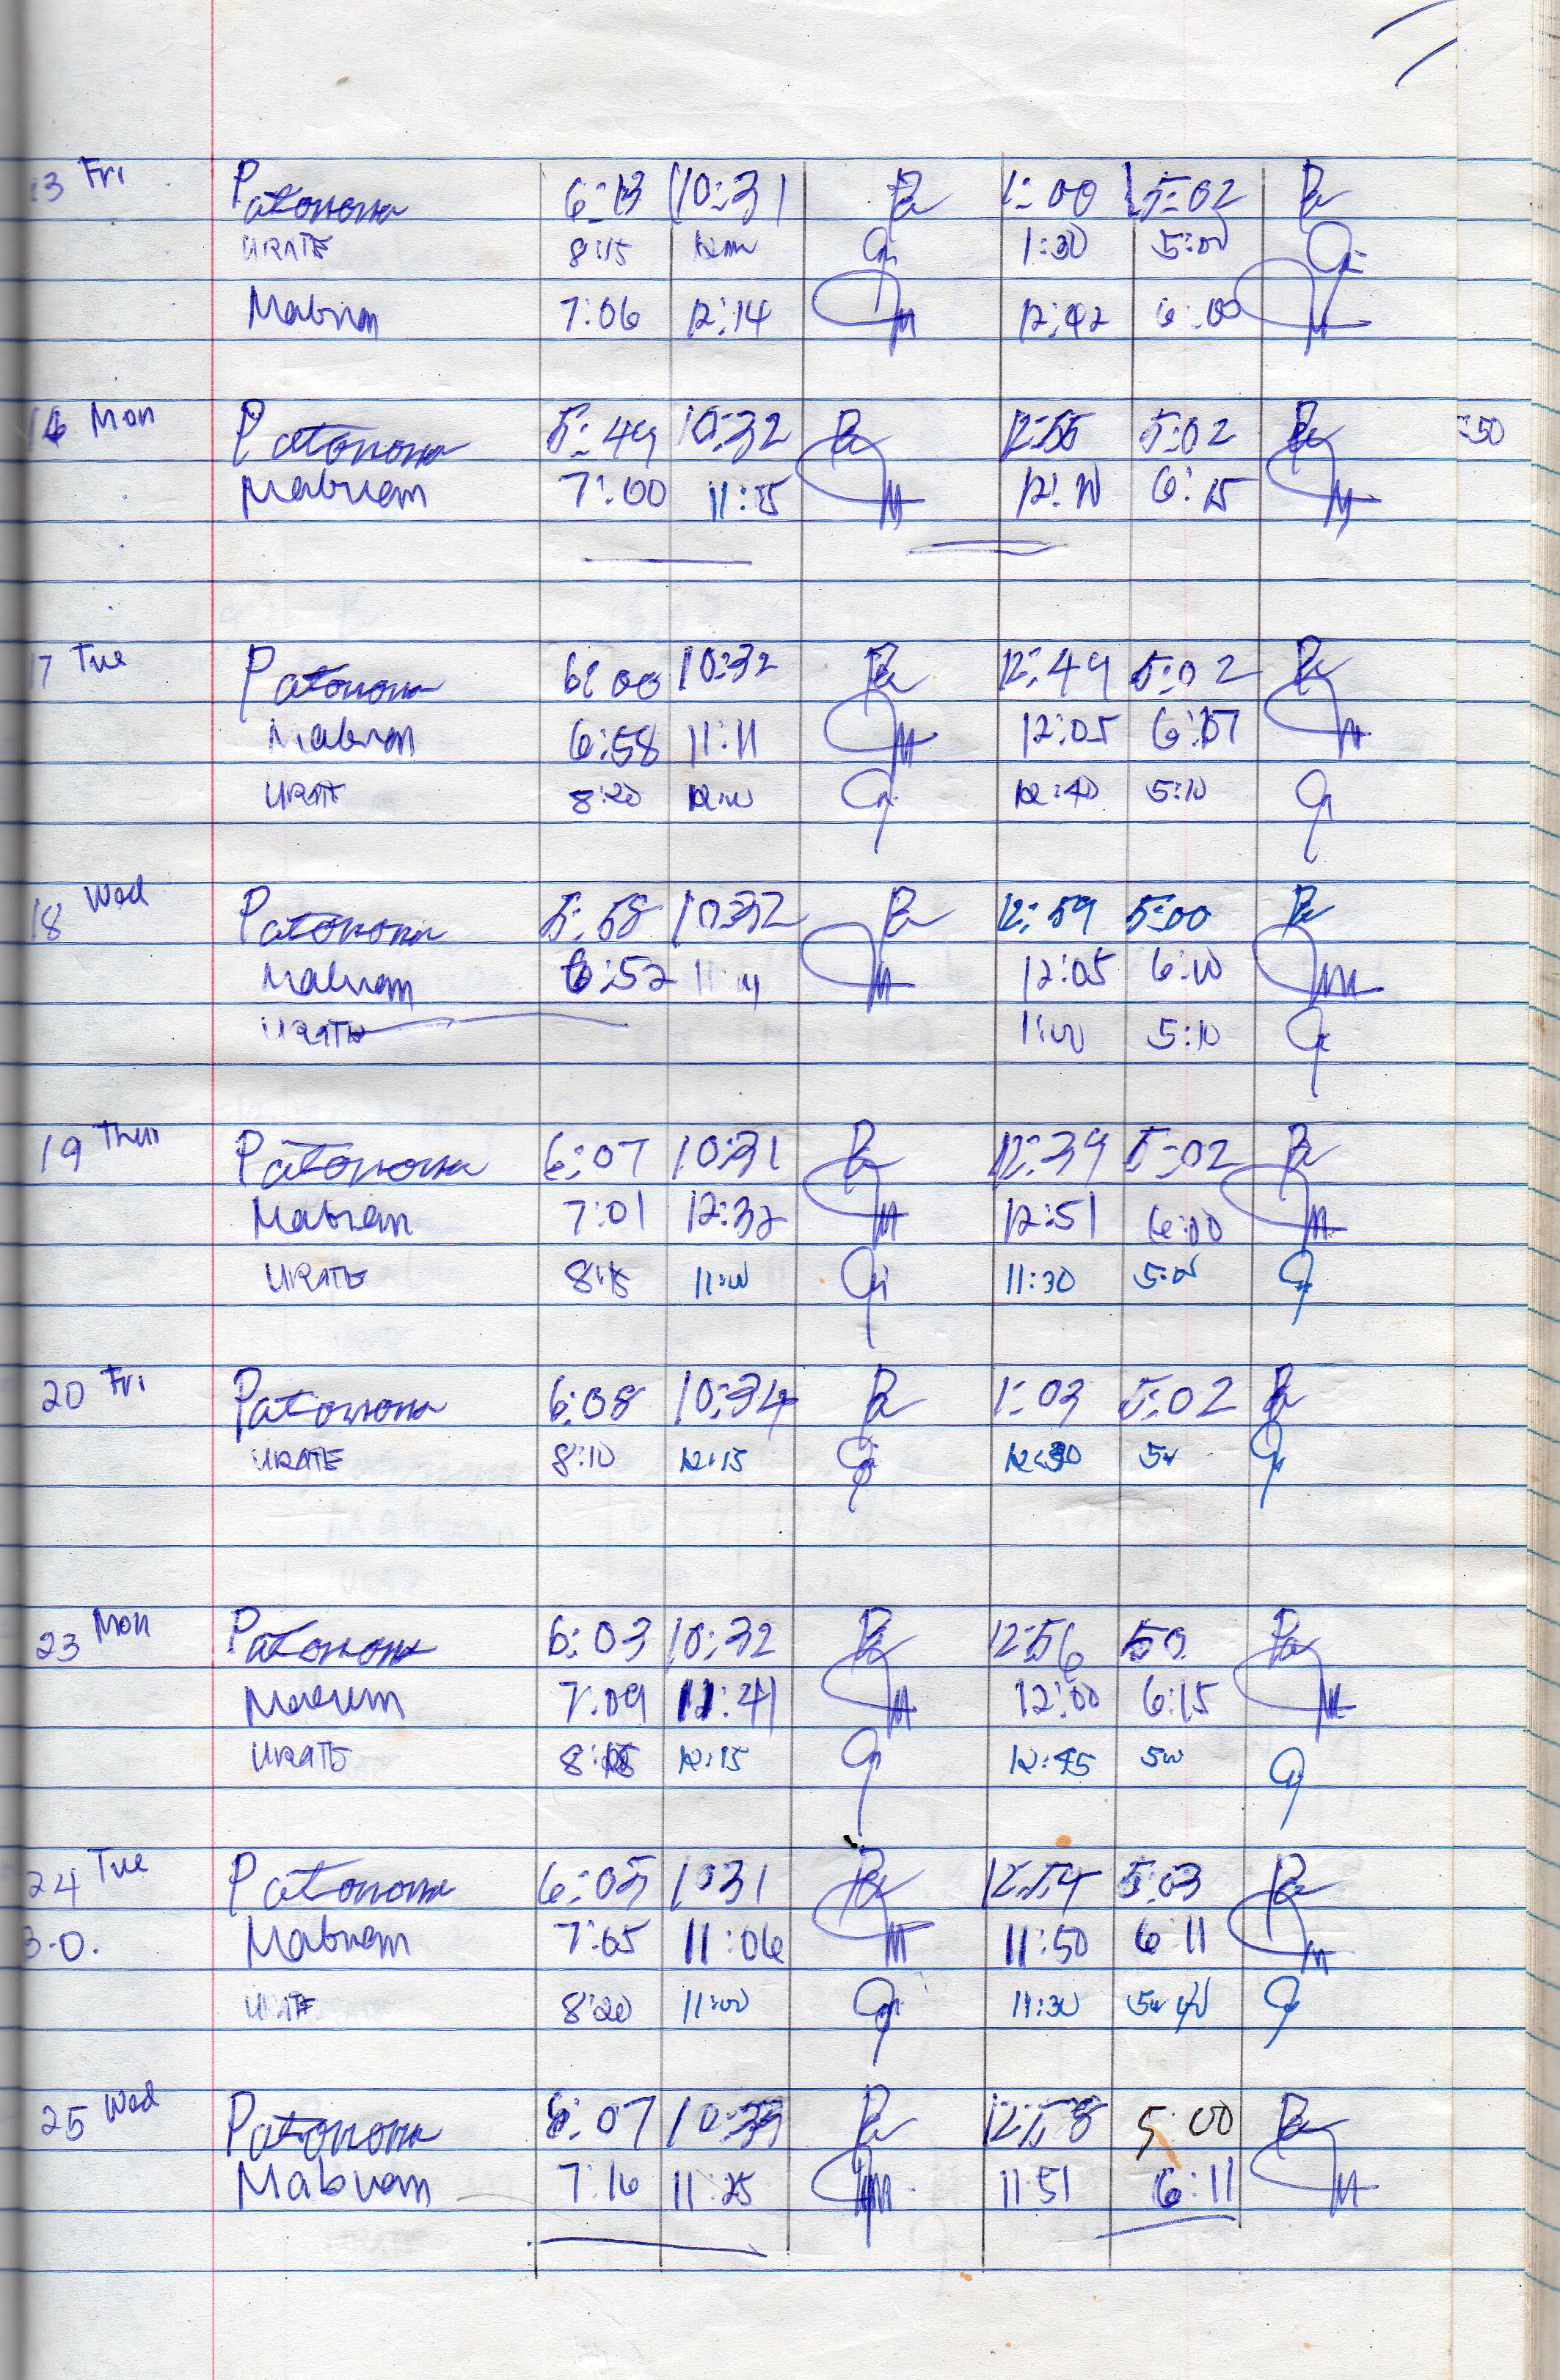 13 Fri Patonona 6:13 10:31 Pa 1:00 5:02 Pa
URATE 8:15 1:30 5:00
Mabuan 7:06 12:14 12:42 6:00
16 Mon Patonona 5:49 10:32 Pa 12:55 5:02 :50
Mabuan 7:00 11:15 12:10 6:15
17 Tue Patonona 6:00 10:32 Pa 12:49 5:02 Pa
Mabuan 6:58 11:11 12:05 6:07
URATE 8:20 12:00 12:40 5:10
18 Wed Patonona 5:58 10:32 Pa 12:59 5:00 Pa
Mabuan 6:52 11:11 12:05 6:10
URATE 1:00 5:10
19 Thu Patonona 6:07 10:31 Pa 12:39 5:02 Pa
Mabuan 7:01 12:32 12:51 6:00
URATE 8:15 11:00 11:30 5:00
20 Fri Patonona 6:08 10:34 Pa 1:03 5:02 Pa
URATE 8:10 12:15 12:30
23 Mon Patonona 6:03 10:32 Pa 12:56 Pa
Mabuan 7:09 11:41 12:00 6:15
URATE 12:15 12:45
24 Tue Patonona 6:05 10:31 Pa 12:54 5:03 Pa
Mabuan 7:05 11:06 11:50 6:11
URATE 8:20 11:00 11:30
25 Wed Patonona 6:07 Pa 12:58 5:00 Pa
Mabuan 7:16 11:25 11:51 6:11